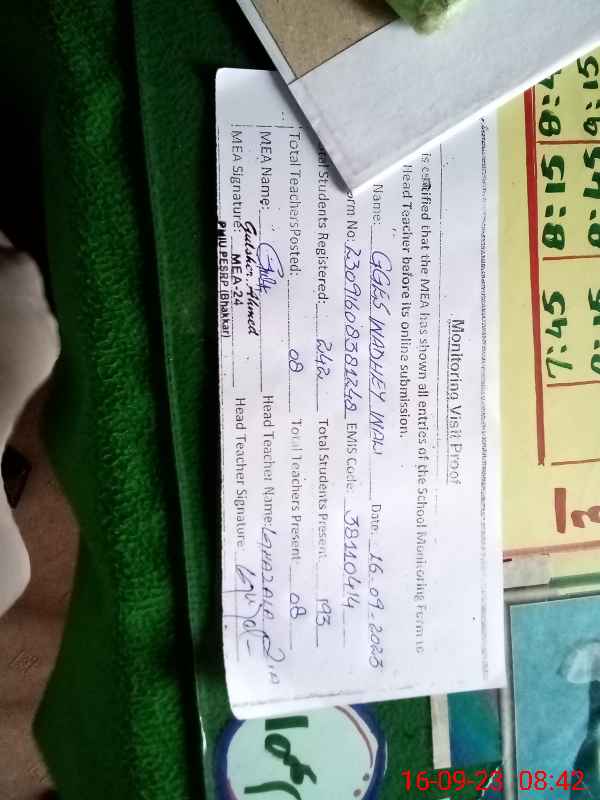 Monitoring Visit Proof
is certified that the MEA has shown all entries of the School Monitoring Form to
Head Teacher before its online submission.
Name: GGES WADHEY WALI Date: 16-09-2023
orm No: 2309160838124 EMIS Code: 38110414
tal Students Registered: 242 Total Students Present: 193
Total TeachersPosted: 08 Total Teachers Present: 08
MEA Name: Head Teacher Name:
Gulsher Ahmed
MEA Signature: MEA-24 Head Teacher Signature:
PMIU PESRP (Bhakkar)
7:45 8:15 8:4
8:45 9:15
16-09-23 08:42